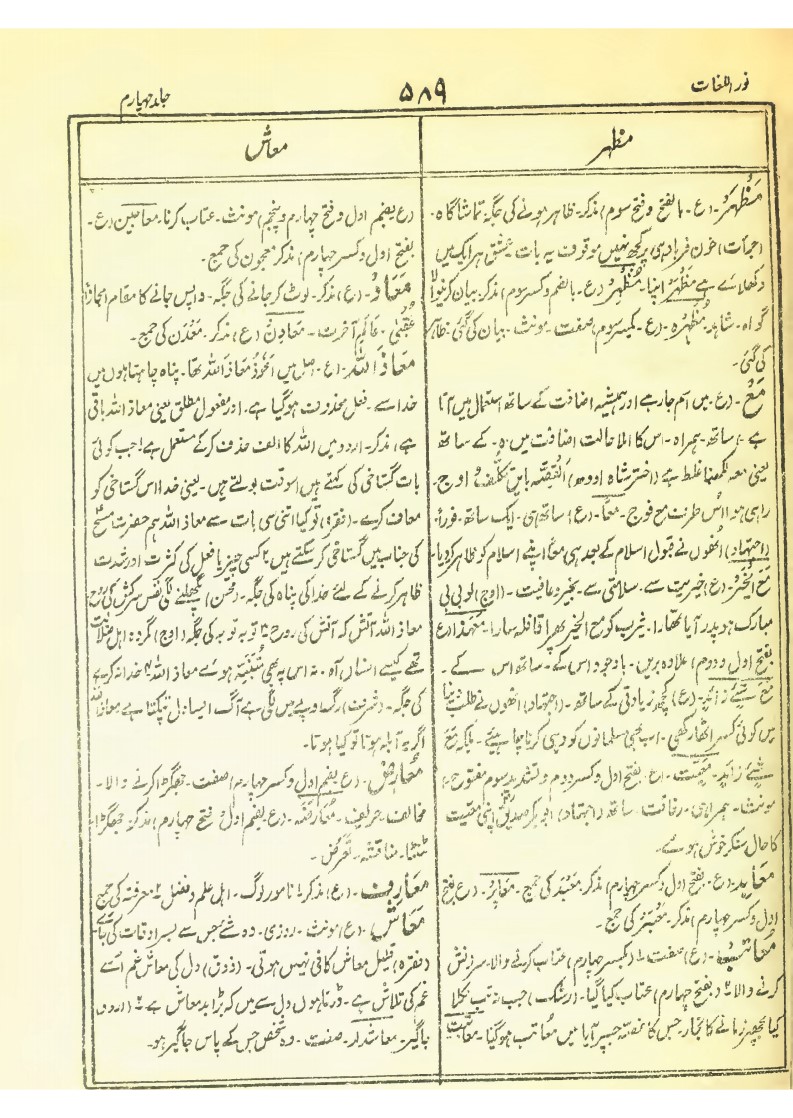 نور اللغات
۵۸۹
جلد چہارم
مظہر
معاش
مَظْہَر۔ (ع۔ بالفتح و فتح سوم) مذکر۔ ظاہر ہونے کی جگہ۔ تماشاگاہ۔
(جرأت) خون فرہاد ہی پر کچھ نہیں موقوف یہ بات عشق ہر ایک میں
دکھلائے ہے مظہر اپنا۔ مُظْہِر (ع۔ بالضم و کسر سوم) مذکر۔ بیان کرنیوالا
گواہ۔ شاہد۔ مُظْہِرہ۔ (ع۔ بکسر سوم) صفت۔ مونث۔ بیان کی گئی۔ ظاہر
کی گئی۔
مَعْ۔ (ع۔ میں اسم جار ہے اور ہمیشہ اضافت کے ساتھ استعمال میں آتا
ہے) ساتھ۔ ہمراہ۔ اس کا املا حالت اضافت میں ہ۔ کے ساتھ
یعنی معہ لکھنا غلط ہے (اختر شاہ اودھ) القصہ بایں تکلف و اوج۔
راہی ہوا اُس طرف مع فوج۔ معاً۔ (ع) ساتھ ہی۔ ایک ساتھ۔ فوراً۔
(اجتہاد) انھوں نے قبول اسلام کے بعد ہی معاً اپنے اسلام کو ظاہر کر دیا۔
مَعَ الخَیر۔ (ع) خیریت سے۔ سلامتی سے۔ بخیر و عافیت۔ (اوج) لو بی بی
مبارک ہو پدر آیا تمھارا۔ یثرب کو مع الخیر پھرا قافلہ سارا۔ معہٰذا (ع
بفتح اول و دوم) علاوہ بریں۔ باوجود اس کے۔ ساتھ اس کے۔
مَعَ شئے زائد۔ (ع) کچھ زیادتی کے ساتھ۔ (اجتہاد) انھوں نے طلب دنیا
میں کوئی کسر اٹھا رکھی۔ اب بھی مسلمانوں کو وہی کرنا چاہیئے۔ بلکہ مع
شئے زائد۔ مَعِیَّت۔ (ع۔ بفتح اول و کسر دوم و تشدید سوم مفتوح)
مونث۔ ہمراہی۔ رفاقت۔ ساتھ (اجتہاد) ابو بکر صدیقؓ اپنی معیت
کا حال سنکر خوش ہوئے۔
مَعَابِد۔ (ع۔ بفتح اول و کسر چہارم) مذکر۔ مَعْبَد کی جمع۔ مَعَابِر۔ (ع بفتح
اول و کسر چہارم) مذکر۔ مَعْبَر کی جمع۔
مُعَاتَب۔ (ع) صفت۔ ۱ (بکسر چہارم) عتاب کرنے والا۔ سرزنش
کرنے والا۔ ۲ (بفتح چہارم) عتاب کیا گیا۔ (رشک) جب نہ تب نکلا
کیا مجھپر زمانے کا بخار۔ جس کا غصہ جسپر آیا میں معاتب ہو گیا۔ معاتبت
(ع بضم اول و فتح چہارم و پنجم) مونث۔ عتاب کرنا۔ معاجین (ع۔
بفتح اول و کسر چہارم) مذکر معجون کی جمع۔
مَعَاد۔ (ع) مذکر۔ لوٹ کر جانے کی جگہ۔ واپس جانے کا مقام (مجازاً)
عُقْبیٰ۔ عالَمِ آخرت۔ مَعَادِن (ع) مذکر۔ مَعْدَن کی جمع۔
مَعَاذَ اللہ۔ (ع۔ اصل میں اَعُوذُ مَعَاذَ اللہ تھا۔ پناہ چاہتا ہوں میں
خدا سے۔ فعل محذوف ہو گیا ہے۔ اور مفعول مطلق یعنی معاذ اللہ باقی
ہے) مذکر۔ اردو میں اللہ کا الف حذف کر کے مستعمل ہے۔ ۱ جب کوئی
بات گستاخی کی کہتے ہیں اسوقت بولتے ہیں۔ یعنی خدا اس گستاخی کو
معاف کرے۔ (فقرہ) تو کیا اتنی سی بات سے معاذ اللہ ہم حضرت مسیح
کی جناب میں گستاخی کر سکتے ہیں۔ ۲ کسی چیز یا فعل کی کثرت اور شدت
ظاہر کرنے کے لئے خدا کی پناہ کی جگہ۔ (محسن) گھلنے لگی نفس سرکش کی روح
معاذ اللہ آتش کہ آتش کی روح ۳ توبہ توبہ کی جگہ (اوج) گمردہ اہل ضلالت
تھے کیسے انساں آہ۔ نہ اس پہ بھی متنبہ ہوئے معاذ اللہ ۴ خدا نہ کرے
کی جگہ۔ (شرف) رگ و پے میں لگی ہے آگ ایسا دل ٹپکتا ہے معاذ اللہ
اگر یہ آبلہ ہوتا تو کیا ہوتا۔
مُعَارِض۔ (ع بضم اول و کسر چہارم) صفت۔ جھگڑا کرنے والا۔
مخالف۔ حریف۔ مُعَارَضَہ۔ (ع۔ بضم اول و فتح چہارم) مذکر۔ جھگڑا۔
ٹنٹا۔ مناقشہ۔ تعرّض۔
مَعَارِف۔ (ع) مذکر۔ ۱ نامور لوگ۔ اہل علم و فضل ۲۔ معرفتہ کی جمع
مَعَاش۔ (ع) مونث۔ روزی۔ وہ شئے جس سے بسر اوقات کی جائے
(فقرہ) قلیل معاش کافی نہیں ہوتی۔ (ذوق) دل کی معاش غم اسے
غم کی تلاش ہے۔ ڈرتا ہوں دل سے میں کہ بڑا بد معاش ہے ۲ (اردو)
جاگیر۔ معاشدار۔ صفت۔ وہ شخص جس کے پاس جاگیر ہو۔